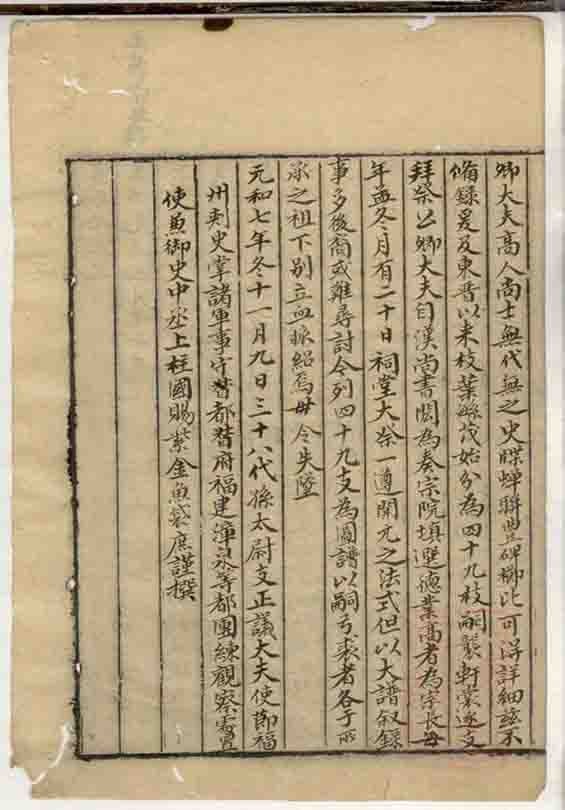 卿大夫高人尚士無代無之史牒蟬聯豐碑櫛比可得詳細玆不
俻録爰及東晉以来枝葉緐茂始分為四十九枝嗣襲軒裳逐支
拜祭公卿大夫自漢尚書閎為奏宗院填選德業髙者為宗長每
年孟冬月有二十日祠堂大祭一遵開元之法式但以大譜叙錄
事多後裔或難尋討今列四十九支為圖譜以嗣弓裘者各于所
承之祖下别立血脉紹焉毋令失墜
元和七年冬十一月九日三十八代孫太尉支正議大夫使節福
州刺史掌諸軍事守督都督府福建漳泉等都團練觀察處置
使兼御史中丞上柱國賜紫金魚袋庶謹撰